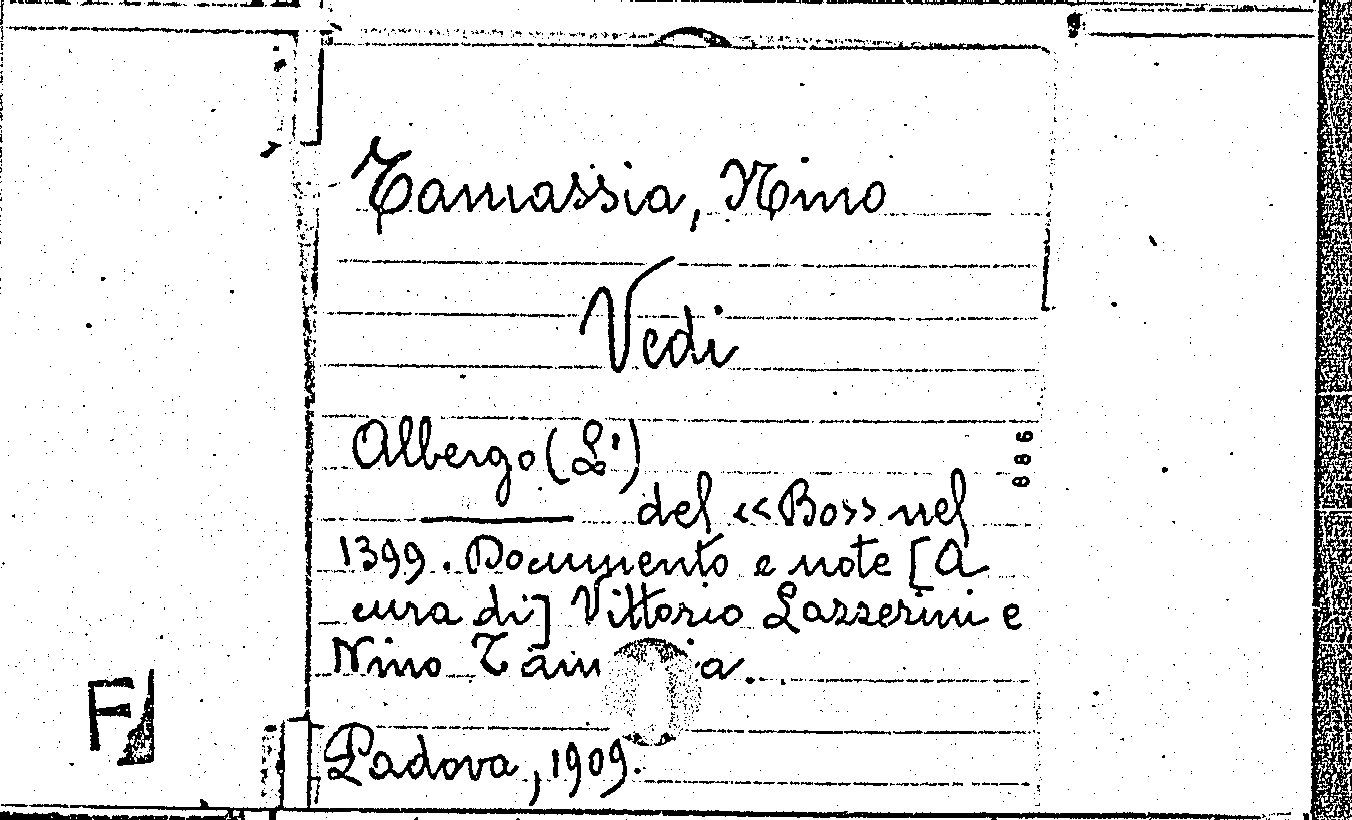 Tamassia, Nino
Vedi
Albergo (L')
del «Bo» nel
1399. Documento e note [A
cura di] Vittorio Lazzerini e
Nino
Padova, 1909.
886
F